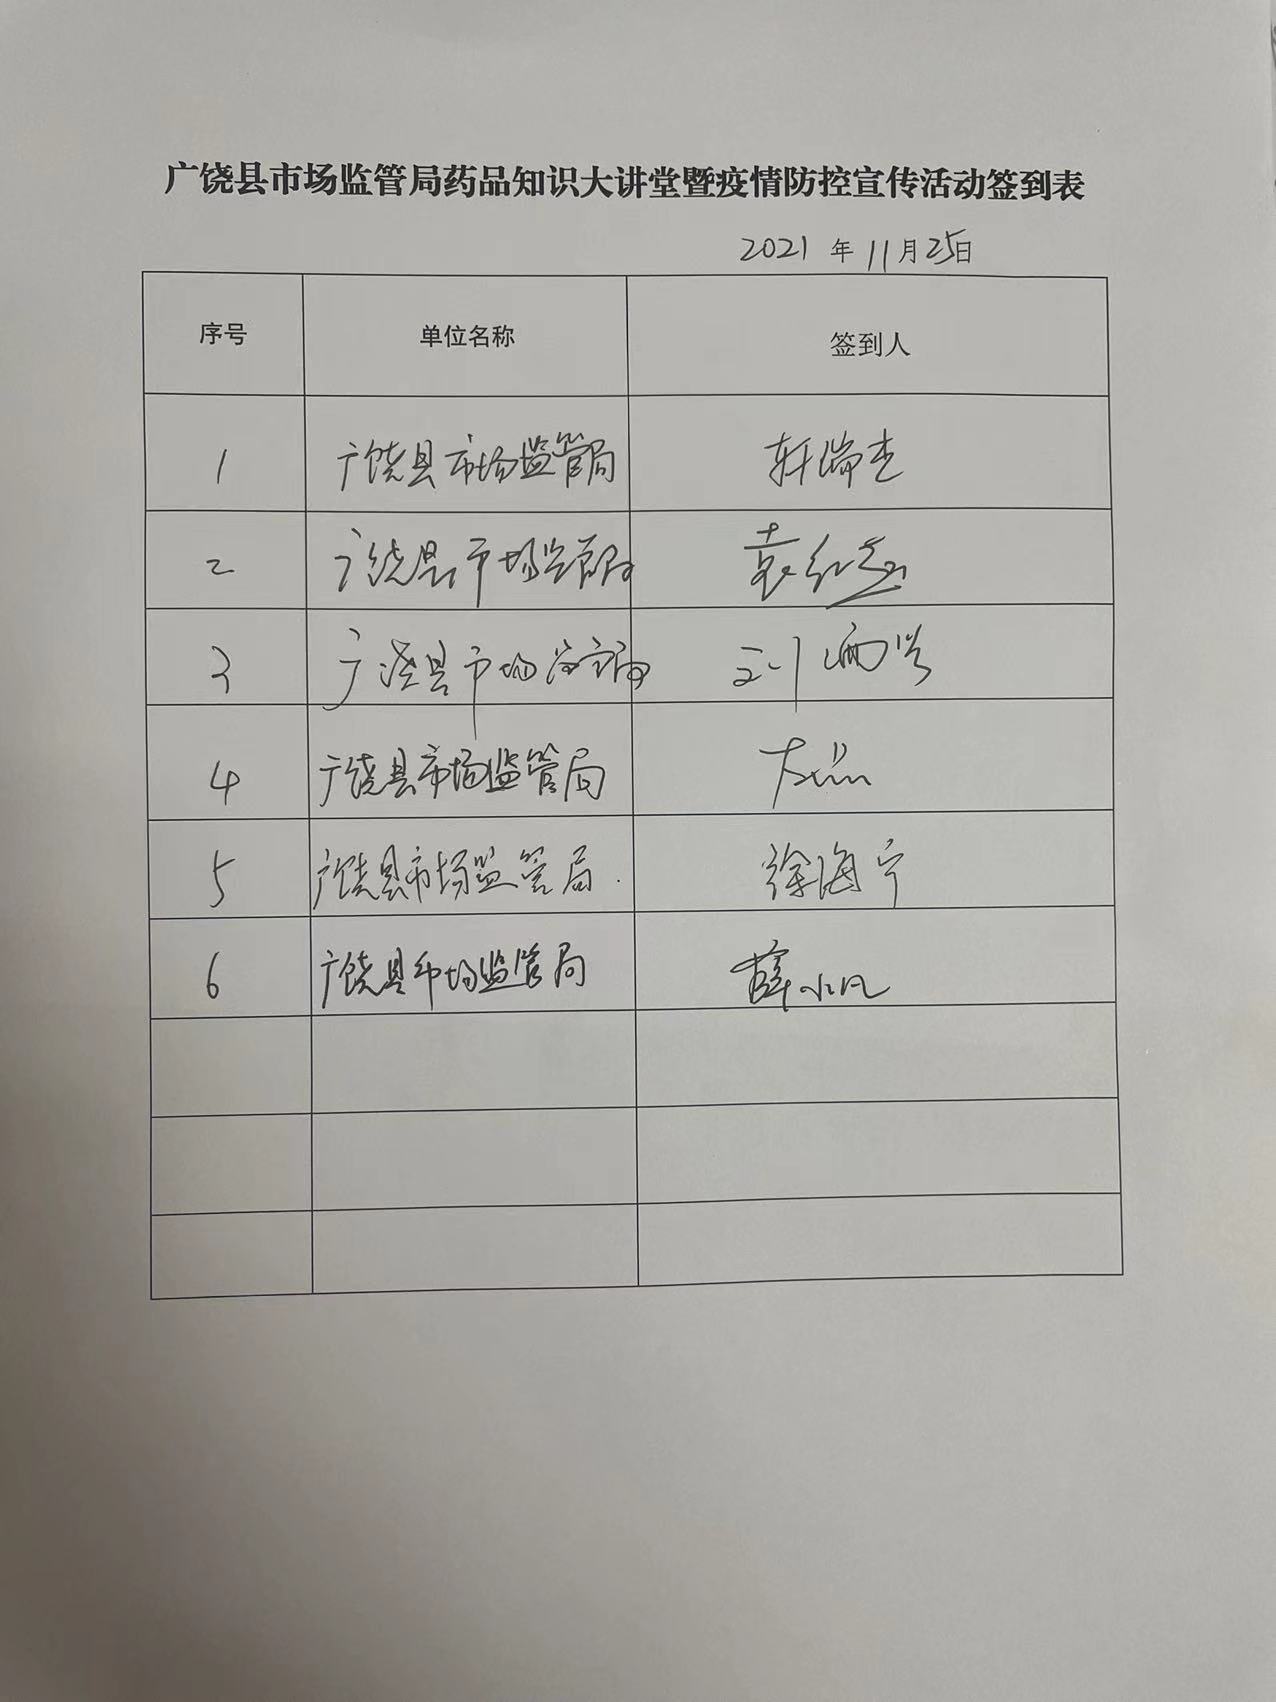 广饶县市场监管局药品知识大讲堂暨疫情防控宣传活动签到表
2021 年 11 月 25 日
序号 单位名称 签到人
1 广饶县市场监管局 轩瑞杰
2 广饶县市场监管局 袁红
3 广饶县市场监管局 刘雨
4 广饶县市场监管局
5 广饶县市场监管局 徐海宁
6 广饶县市场监管局 薛小凡